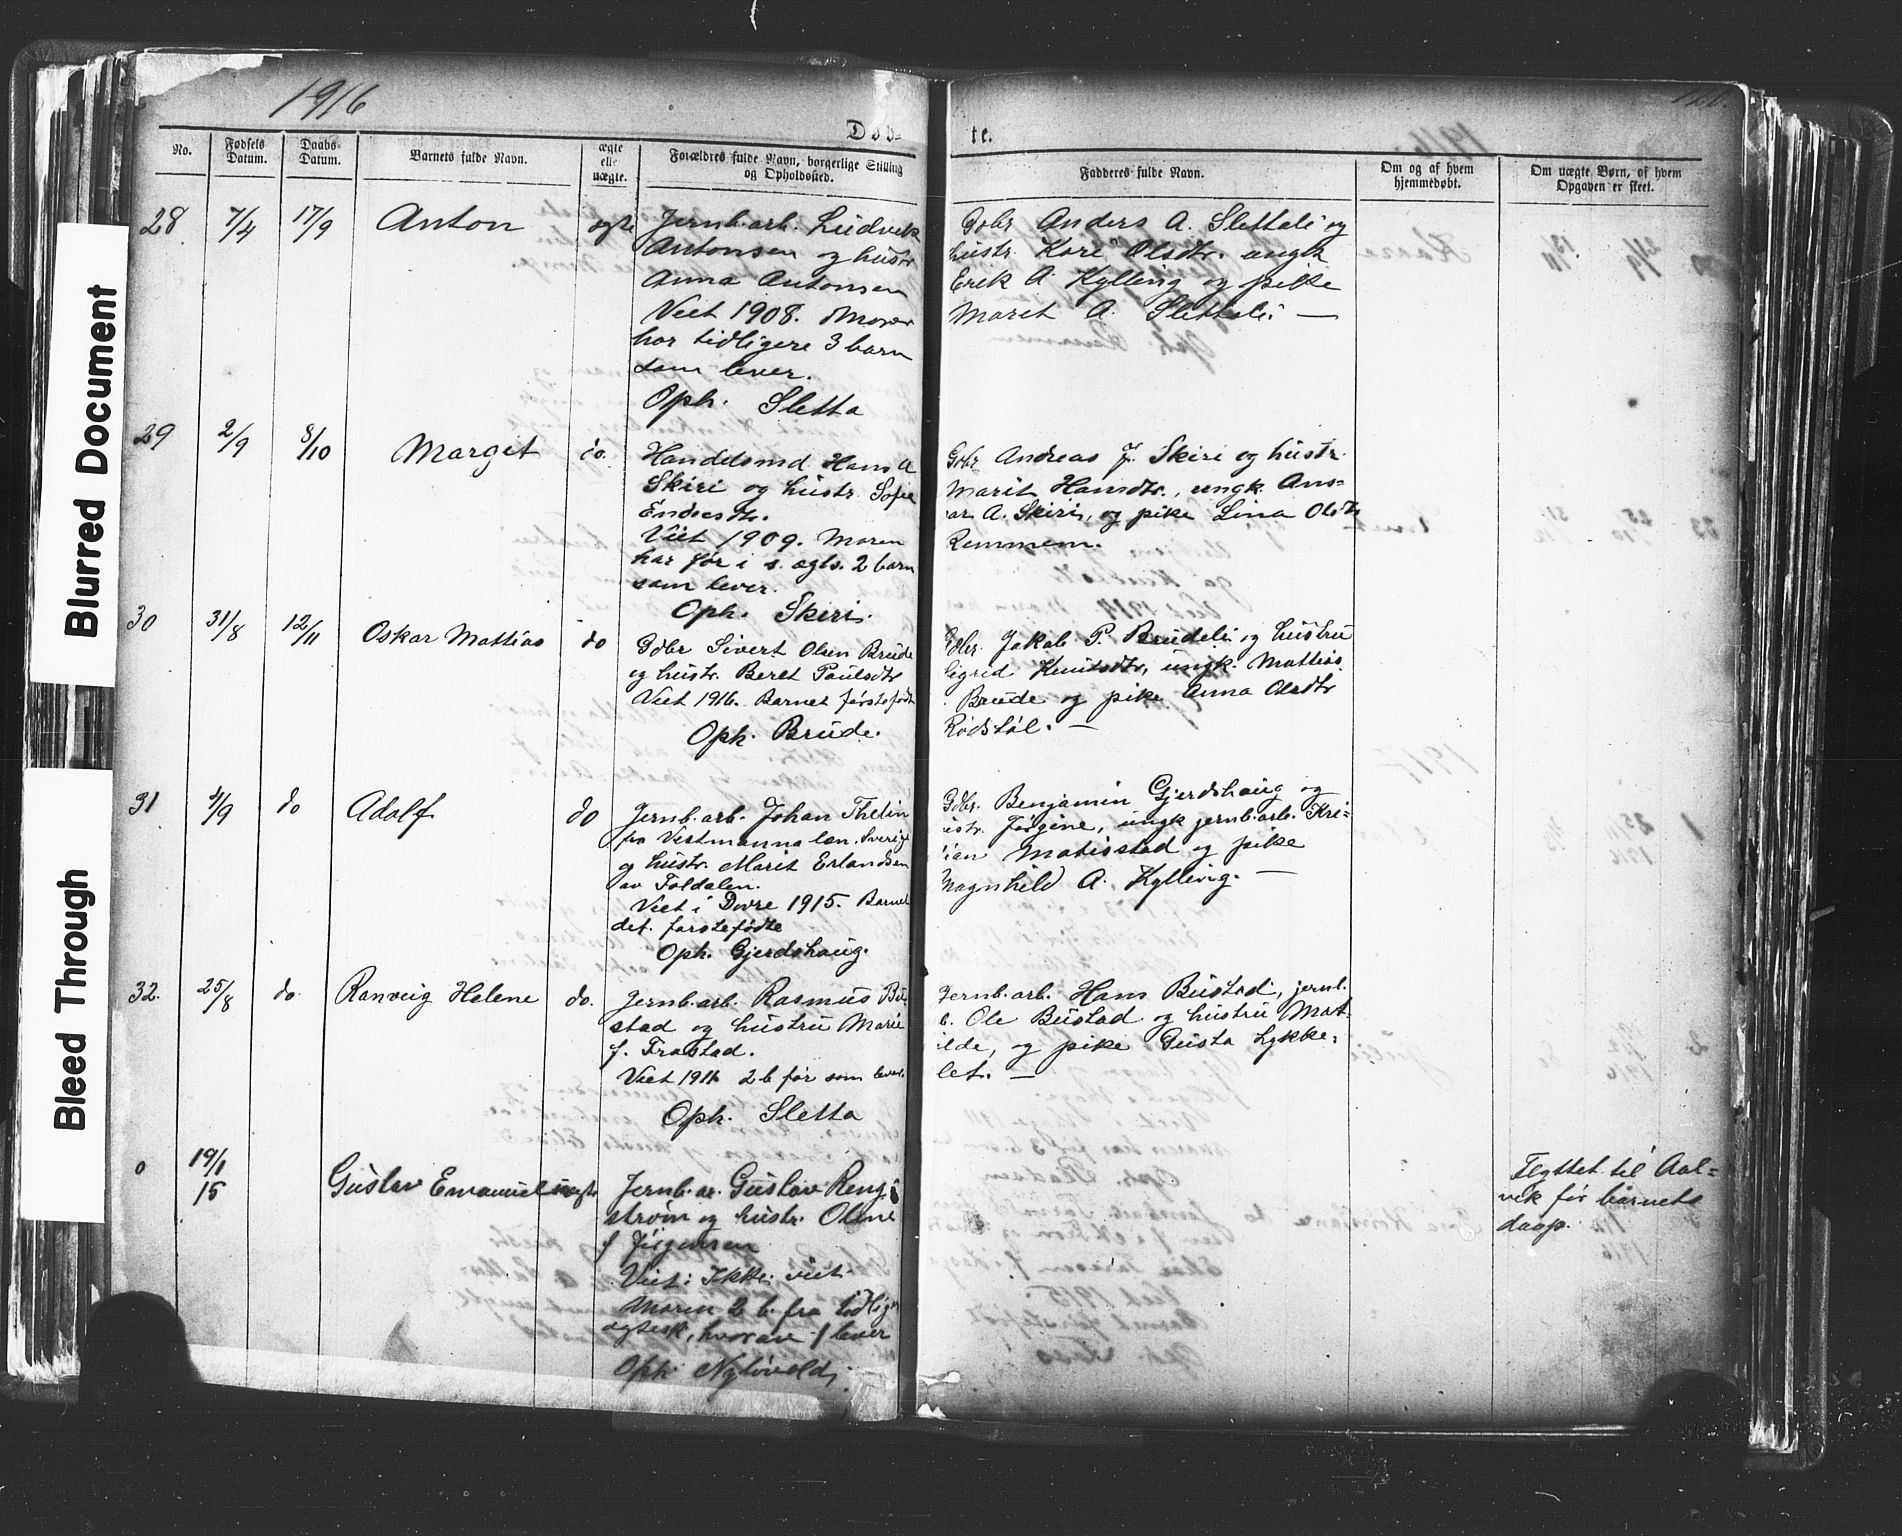 1916
Døb-
te.
No.
Fødsels Datum.
Daabs- Datum.
Barnets fulde Navn.
ægte elle uægte.
Forældres fulde Navn, borgerlige Stilling og Opholdssted.
Fadderes fulde Navn.
Om og af hvem hjemmedøbt.
Om uægte Børn, af hvem Opgaven er skeet.
28 7/4 17/9 Anton ægte
Jernb.arb. Ludvik
Antonsen og hustr
Anna Antonsen
Viet 1908. Moren
har tidligere 3 barn
som lever.
Oph. Sletta
Gbr Anders A. Slettali og
hustr. Kari Olsdtr. ungk
Erik A. Kylling og pike
Marit A. Slettali —
29 2/9 8/10 Margit do.
Handelsmd. Hans A
Skiri og hustr. Sofie
Endresdtr.
Viet 1909. Moren
har før i s. ægts. 2 barn
som lever.
Oph. Skiri.
Gbr Andreas J. Skiri og hustr.
Marit Hansdtr., ungk. Ans-
ar A. Skiri, og pike Lina Olsdtr
Remmem.
30 31/8 12/11 Oskar Mattias do
Gdbr Sivert Olsen Brude
og hustr. Beret Paulsdtr
Viet 1916. Barnet førstefødt
Oph. Brude.
Gdbr. Jakob P. Brudeli og hustru
Sigrid Knutsdtr, ungk. Mattias
Brude og pike Anna Olsdtr
Rødstøl. —
31 4/9 do Adolf do
Jernb.arb. Johan Thelin
fra Vestmannalen. Sverige
og hustr. Marit Erlandsen
av Foldalen.
Viet i Dovre 1915. Barnet
det førstefødte
Oph. Gjerdshaug.
Gdbr. Benjamin Gjerdshaug og
ustr. Jørgine, ungk jernb.arb. Kri-
tian Matisstad og pike
Magnhild A. Kylling. —
32. 25/8 do. Ranveig Helene do.
Jernb.arb. Rasmus Bu-
stad og hustru Marie
f. Frostad.
Viet 1911 2 b før som lever.
Oph. Sletta
Jernb.arb. Hans Bustad, jernb.
b. Ole Bustad og hustru Mat-
ilde, og pike Gusta Lykke-
let. —
0 19/1 15 Gustav Emanuel uægte
Jernb.ar. Gustav Reng-
strøm og hustr. Oline
f Jørgensen
Viet: Ikke viet
Moren 2 b. fra tidliger
ægtesk., hvorav 1 lever
Oph.
Flyttet til Aal-
vik før barnets
daap.
Blurred Document
Bleed Through